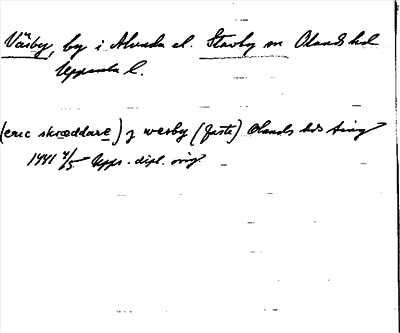 Väsby, by i Alunda el. Stavby sn Olands hd
Uppsala l.
(eric skræddare) j wesby (faste) Olands hds ting
1441 4/5 Upps. dipl. orig